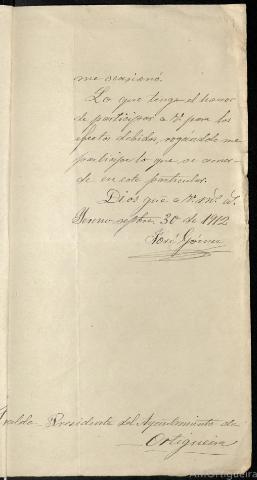 me ocasionó.
Lo que tengo el honor
de participar a V. para los
efectos debidos, rogándole me
participe lo que se acuer-
de en este particular.
Dios gue a V. ms. as.
septbre 30 de 1912
José Gómez
Presidente del Ayuntamiento de
Ortigueira